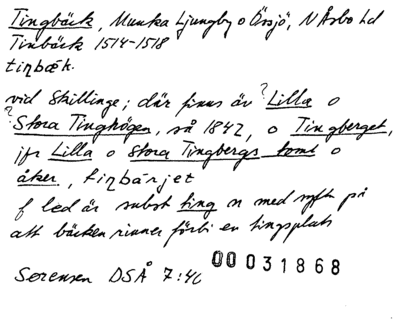 Tingbäck, Munka Ljungby o Össjö, N Åsbo hd
Tinbäck 1514-1518
tiŋbæk.
vid Skillinge; där finns äv ?Lilla o
?Stora Tinghögen, så 1842, o Tingberget,
jfr Lilla o Stora Tingbergs tomt o
åker, tiŋbärjet
f led är subst ting n med syftn på
att bäcken rinner förbi en tingsplats
Sorensen DSÅ 7:46
00031868